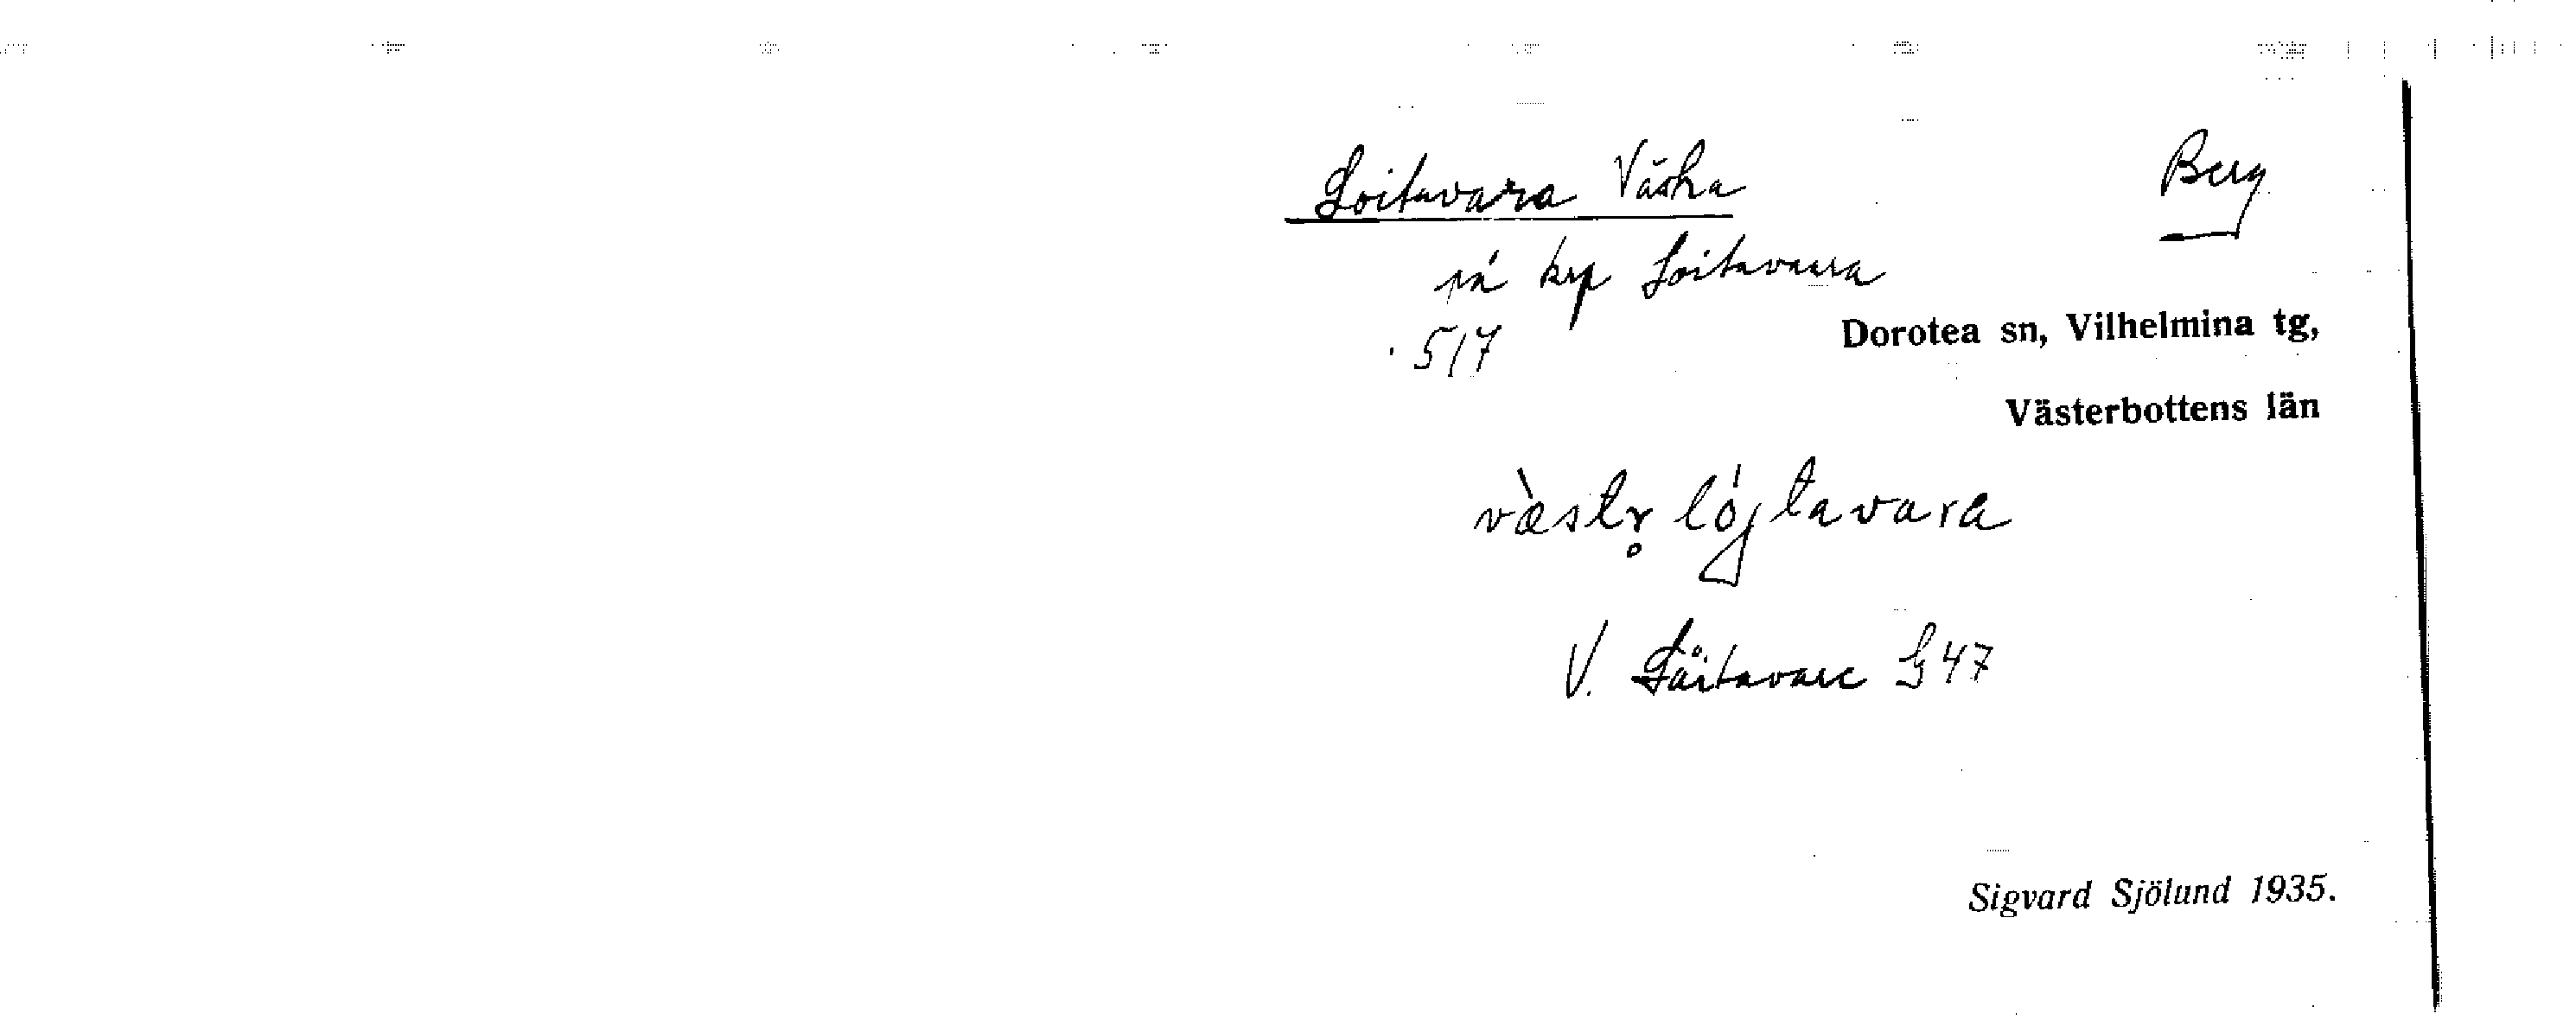 Loitavara Västra Berg
på krp Loitavaara
517 Dorotea sn, Vilhelmina tg,
Västerbottens län
væ̀str̥ lójtavara
V. Låitavare G 47
Sigvard Sjölund 1935.